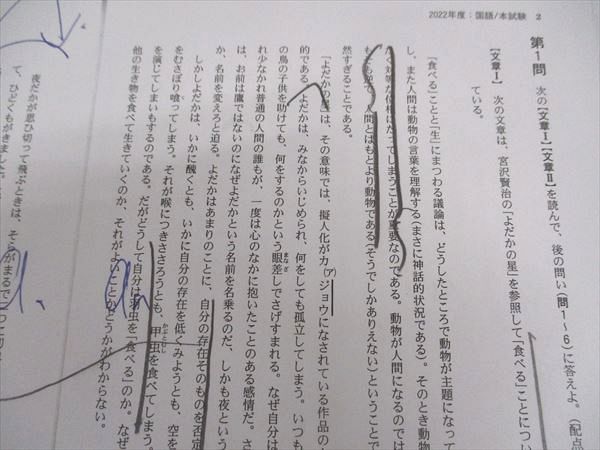 2022年度：国語/本試験 2
第1問 次の【文章Ⅰ】【文章Ⅱ】を読んで、後の問い（問1〜6）に答えよ。（配点
【文章Ⅰ】 次の文章は、宮沢賢治の「よだかの星」を参照して「食べる」ことについ
ている。
「食べる」ことと「生」にまつわる議論は、どうしたところで動物が主題になって
し、また人間は動物の言葉を理解する（まさに神話的状況である）。そのとき動物
かく対等な位相にたってしまうことが重要なのである。動物が人間になるのでは
もそも逆で、人間とはもとより動物である（そうでしかありえない）ということで
然すぎることである。
「よだかの星」は、その意味では、擬人化がカ(ア)ジョウになされている作品の
的である。よだかは、みなからいじめられ、何をしても孤立してしまう。いつも
の鳥の子供を助けても、何をするのかという眼差まなざしでさげすまれる。なぜ自分は
れ少なかれ普通の人間の誰もが、一度は心のなかに抱いたことのある感情だ。さ
は、お前は鷹ではないのになぜよだかという名前を名乗るのだ、しかも夜という
か、名前を変えろと迫る。よだかはあまりのことに、自分の存在そのものを否定
しかしよだかは、いかに醜くとも、いかに自分の存在を低くみようとも、空を
をむさぼり喰ってしまう。それが喉につきささろうとも、甲虫かぶとむしを食べてしまう。
を演じてしまもするのである。だがどうして自分は羽虫を「食べる」のか。なぜ
他の生き物を食べて生きていくのか、それがよいことかどうかがわからない。
夜だかが思ひ切って飛ぶときは、そらがまるで二つに切れ
て、ひどくもがきました。